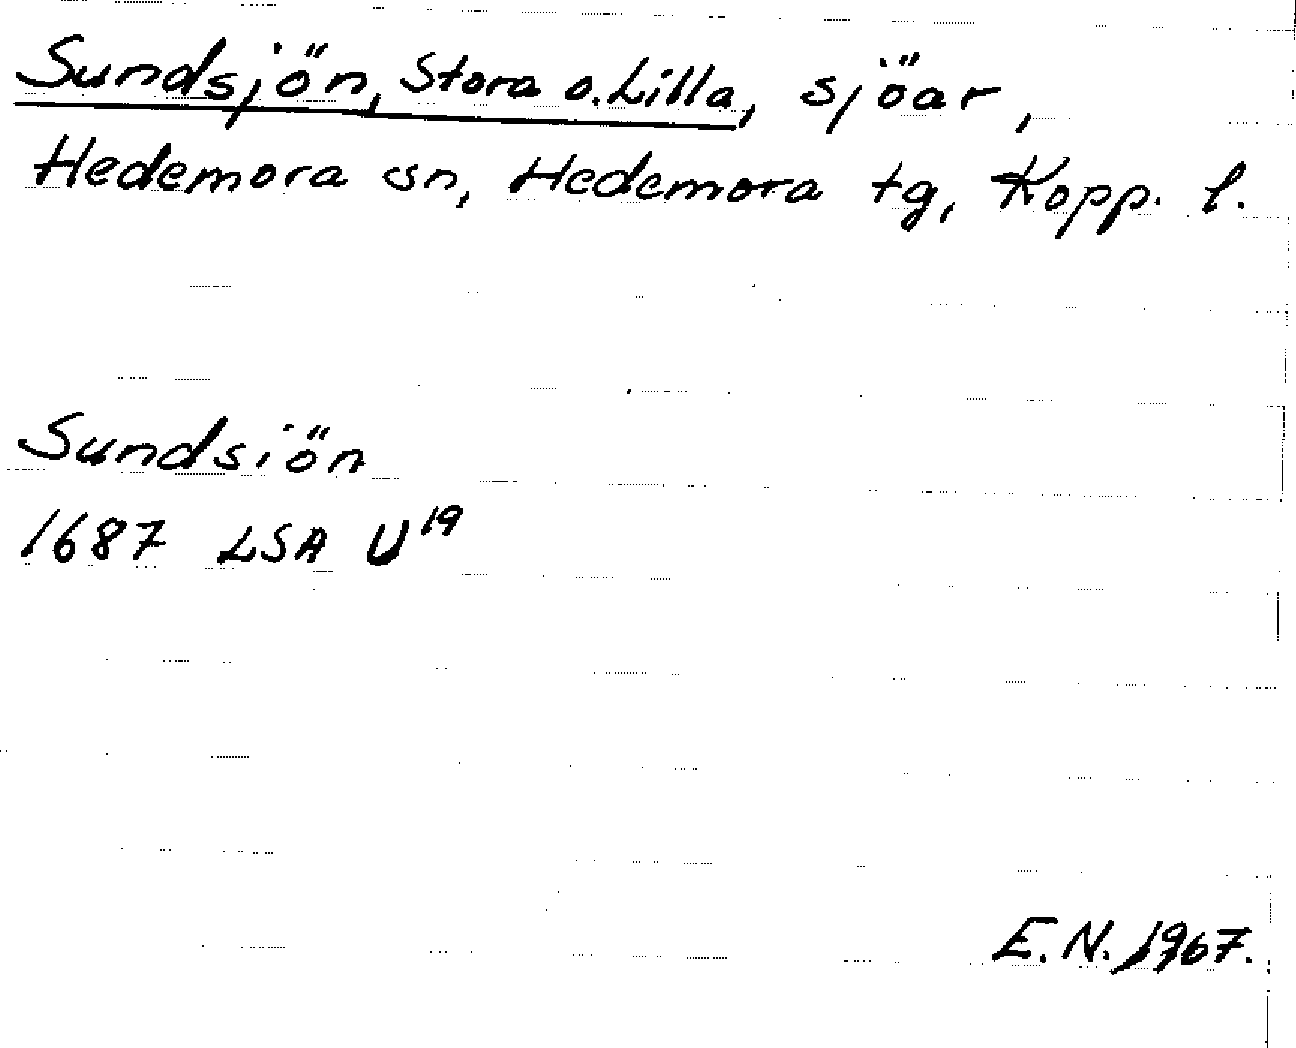 Sundsjön, Stora o. Lilla, sjöar,
Hedemora sn, Hedemora tg, Kopp. l.
Sundsiön
1687 LSA U19
E.N. 1967.